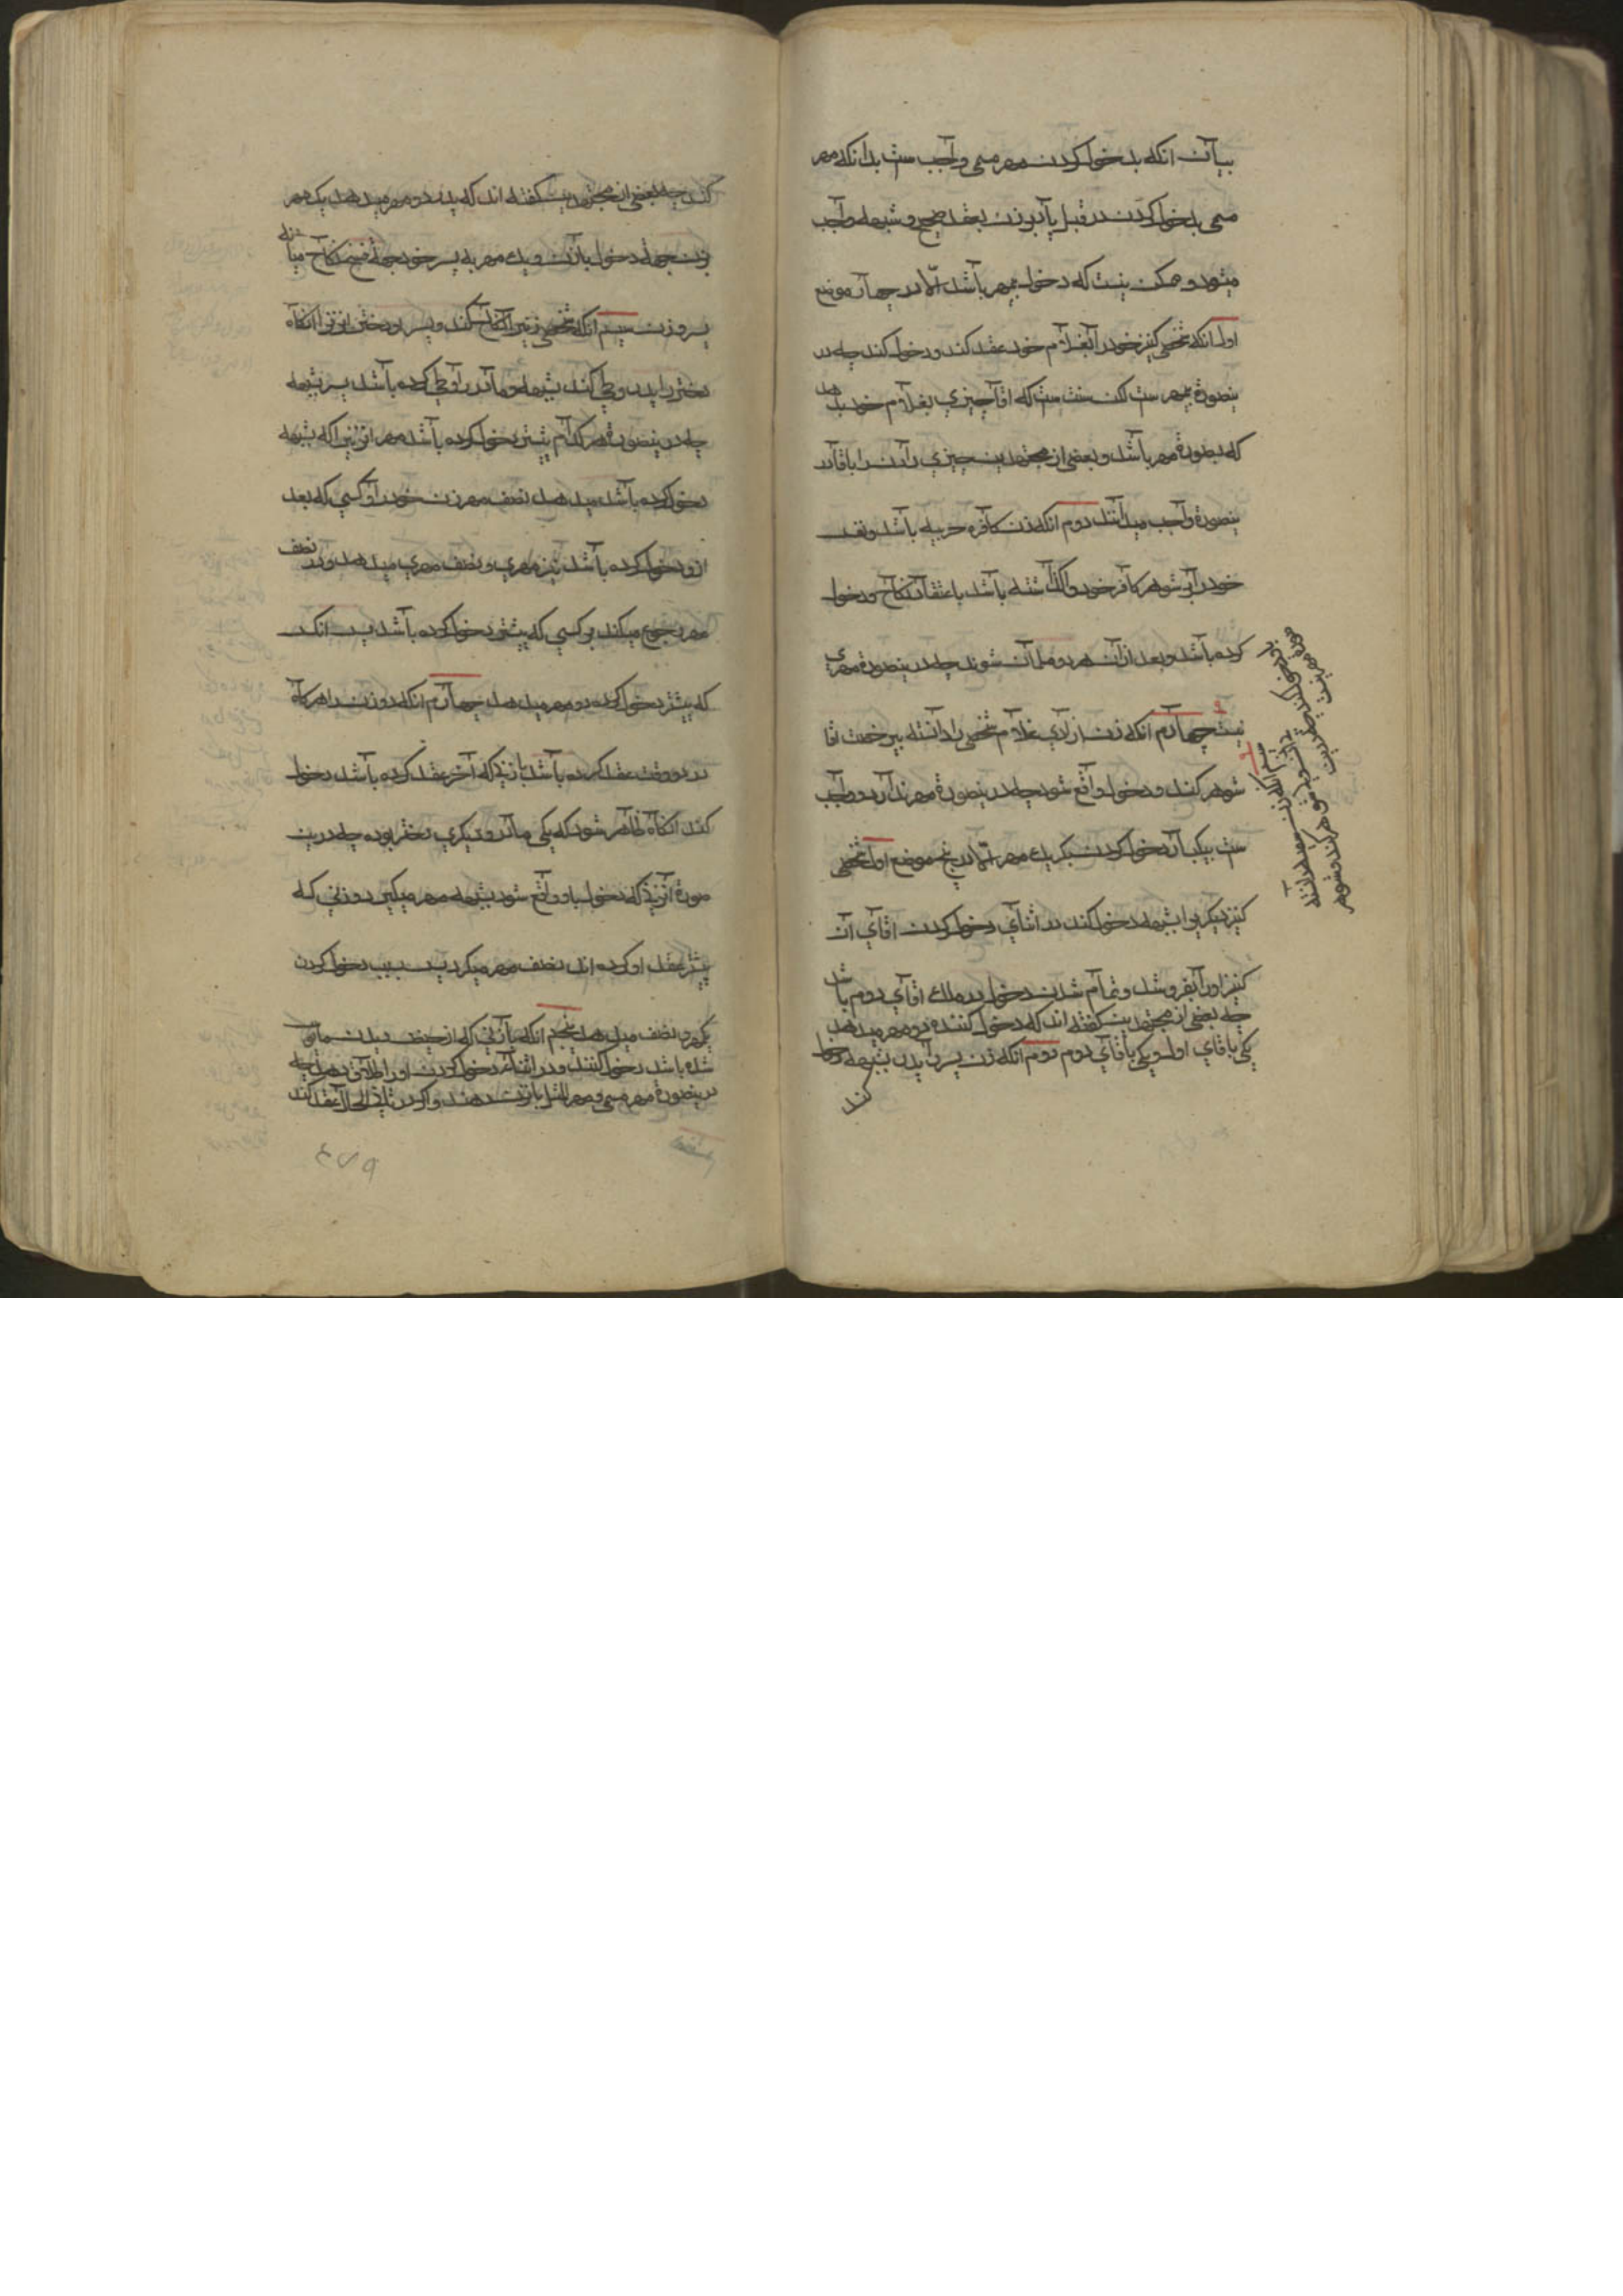 بیان انکه بدخول کردن مهر مسمی واجب ست بدانکه مهر
مسمی بدخول کردن در قبل یا دبر زن بعقد صحیح و شبهه واجب
میشود و ممکن نیست که دخول بیمهر باشد الا در چهار موضع
اول انکه شخصی کنیز خود را بغلام خود عقد کند و دخول کند چه در
ینصورة بیمهر ست لکن سنت ست که اقا چیزی بغلام خود بدهد
که بصورة مهر باشد و بعضی از مجتهدین چیزی دادن را باقا در
ینصورة واجب میدانند دوم انکه زن کافره حربیه باشد و نفس
خود را بشوهر کافر خود واگذاشته باشد باعتقاد نکاح و دخول
کرده باشد و بعد از ان هر دو مسلمان شوند چه در ینصورة مهری
نیست چهارم انکه زن ازادی غلام شخصی را دانسته بیرخصت اقا
شوهر کند و دخول واقع شود چه در ینصورة مهر ندارد و واجب
ست بیکبار دخول کردن بیکزن یک مهر الا در پنج موضع اول شخصی
کنیز دیگری را بشبهه دخول کند در اثنای دخول کردن اقای ان
کنیز او را بفروشد و تمام شدن دخول در ملک اقای دوم باشد
چه بعضی از مجتهدین گفته اند که دخول کننده دو مهر میدهد
یکی باقای اول و یکی باقای دوم دوم انکه زن پسر را پدر بشبهه دخول
کند
کند چه بعضی از مجتهدین گفته اند که پدر دو مهر میدهد یک مهر
بزن بجهة دخول بان و یک مهر به پسر خود بجهة فسخ نکاح میانه
پسر و زن سیم انکه شخصی زنی را نکاح کند و پسر او دختر انزن را انکاه
دختر را پدر وطی کند بشبهه و مادر را وطی کرده باشد پسر بشبهه
چه در ینصورة هر کدام پیشتر دخول کرده باشد مهر انزنی را که بشبهه
دخول کرده باشد میدهد نصف مهر زن خود را و کسی که بعد
ازو دخول کرده باشد نیز مهری و نصف مهری میدهد و در نصف
مهر رجوع میکند بر کسی که پیشتر دخول کرده باشد پس انکس
که پیشتر دخول کرده دو مهر میدهد چهارم انکه دو زن را هرکاه
در دو وقت عقد کرده باشد بازنی که آخر عقد کرده باشد دخول
کند انکاه ظاهر شود که یکی مادر و دیگری دختر بوده چه درین
صورة انزنی که دخول باو واقع شود بشبهه مهر میگیرد و زنی که
پیشتر عقد او کرده اند نصف مهر میگیرد پس بسبب دخول کردن
یکمهر و نصف میدهد پنجم انکه بازنی که از حیض دیدن مایوس
شده باشد دخول کنند و در اثناء دخول کردن او را طلاق دهد چه
در ینصورة مهر مسمی و مهر المثل بانزن دهند و اگر در ان حال عقد کند